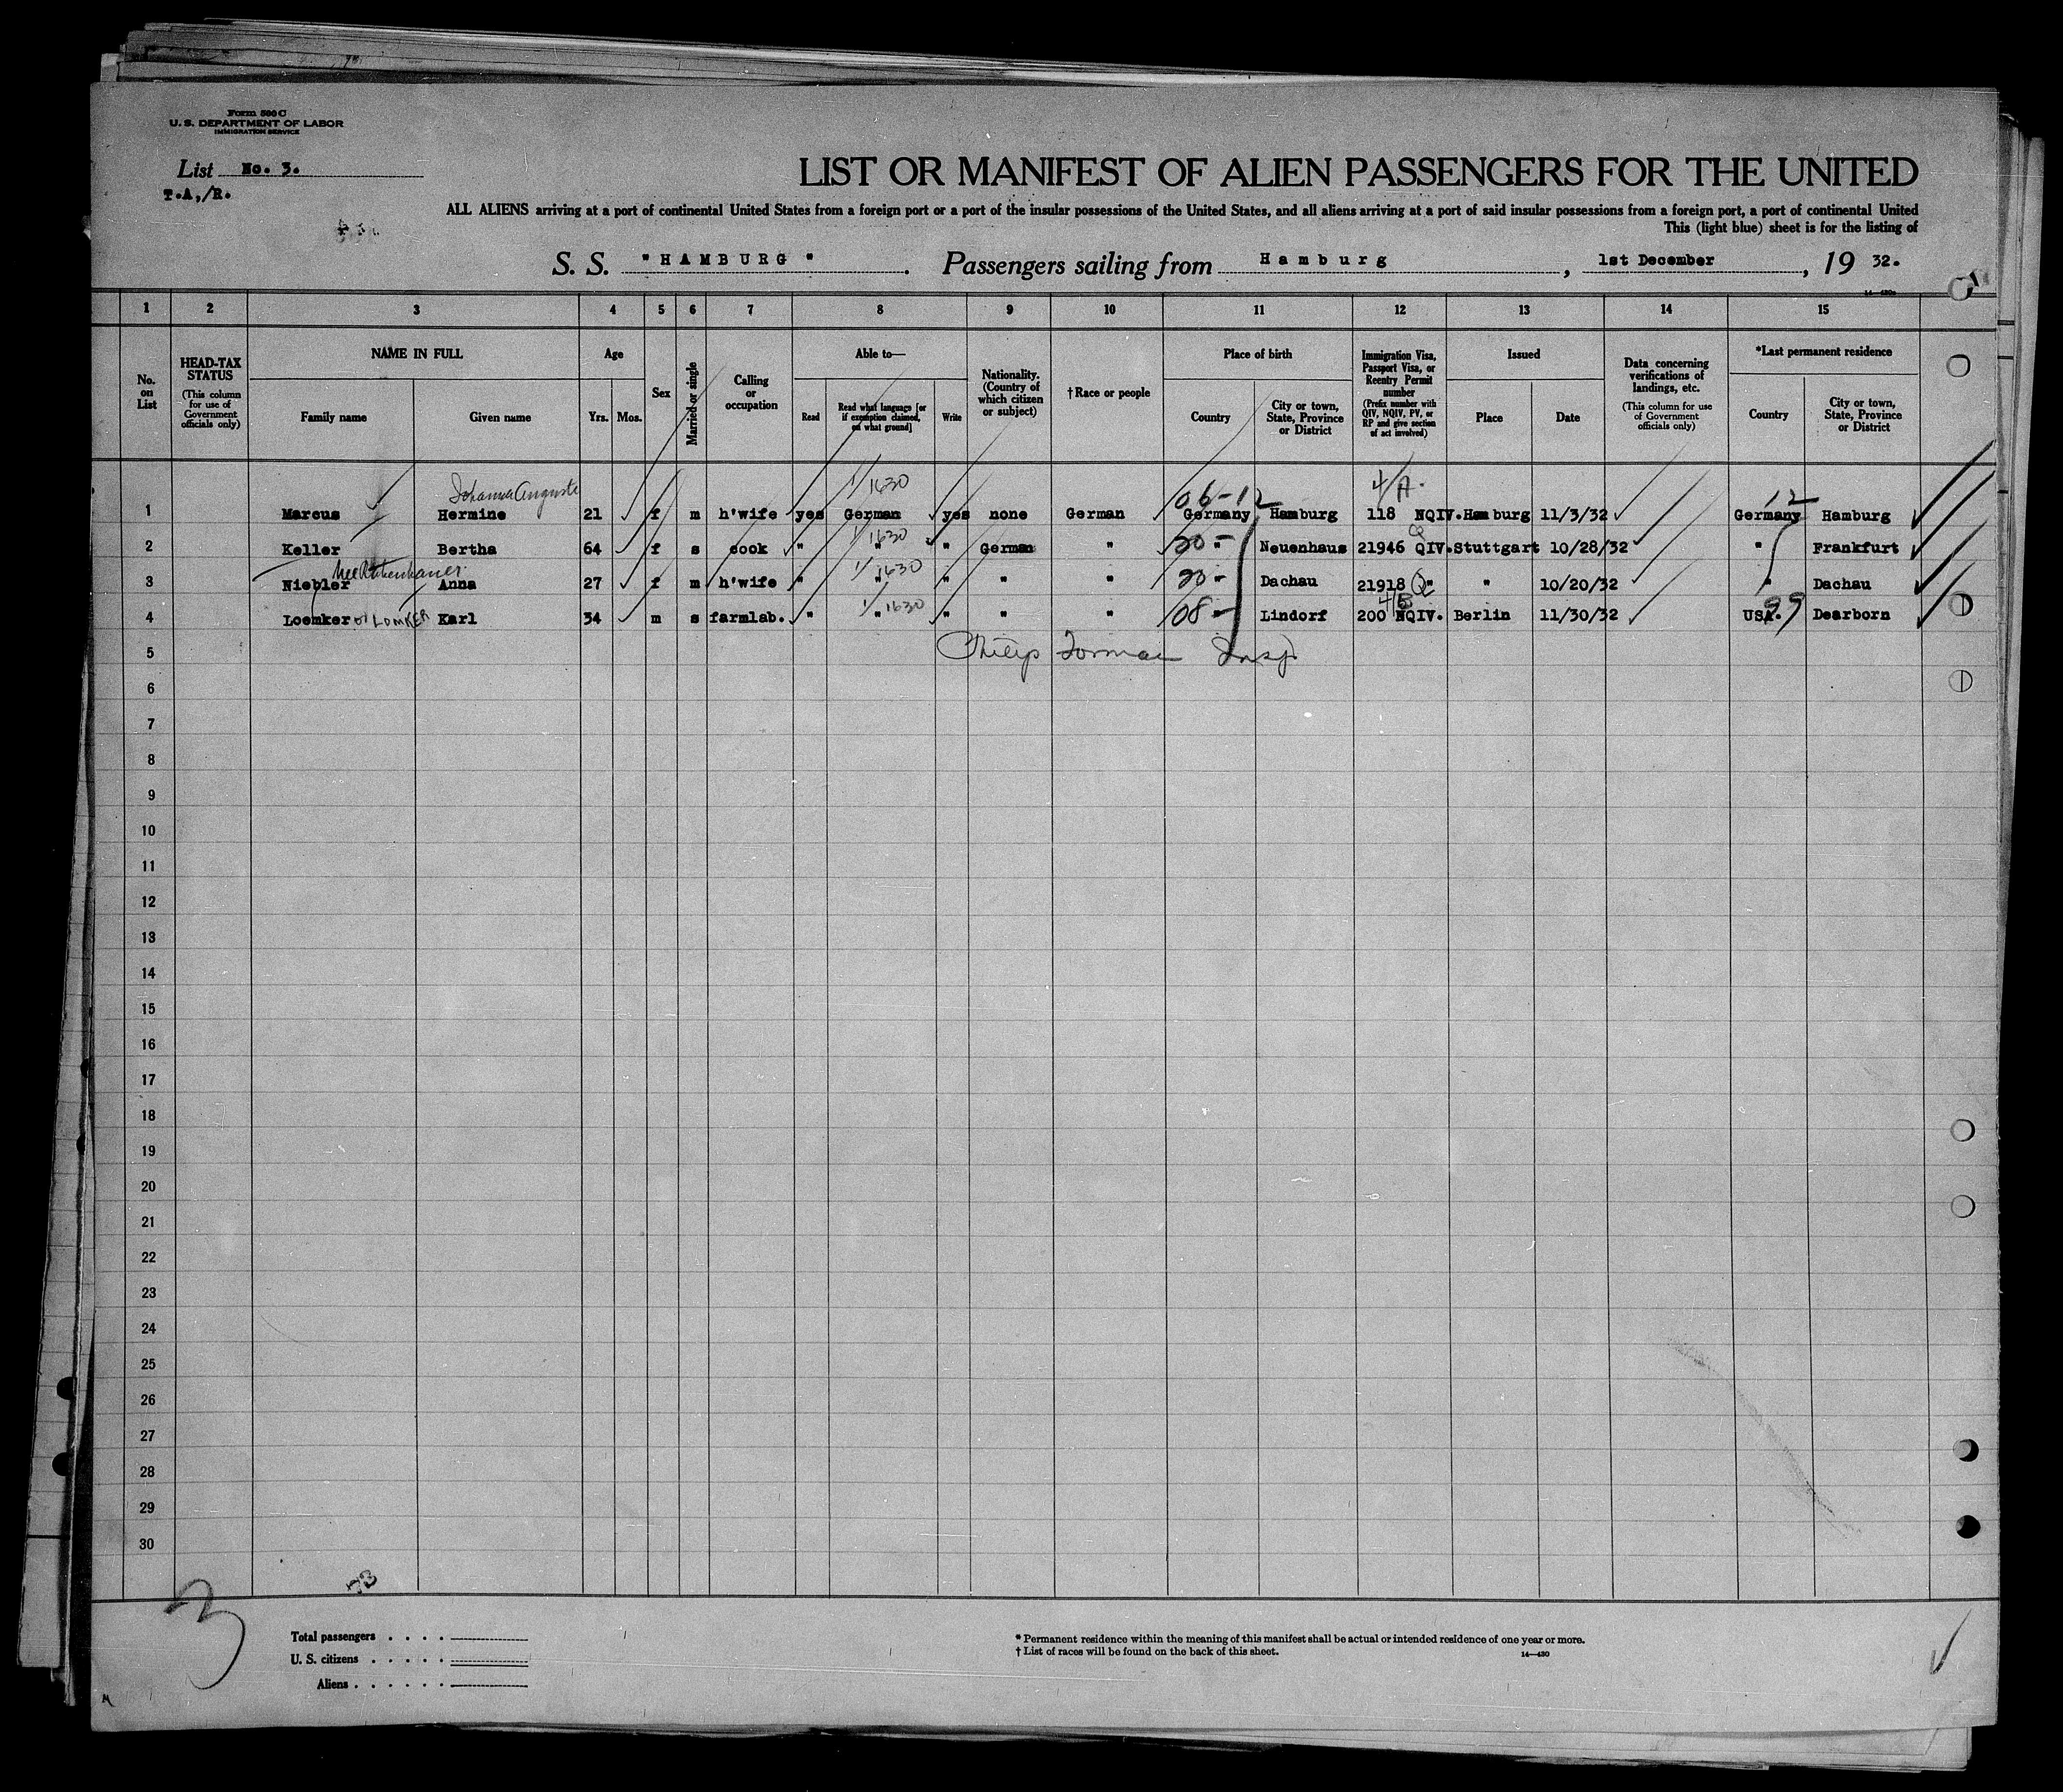 Form 500 C
U. S. DEPARTMENT OF LABOR
IMMIGRATION SERVICE
List No. 3.
T.A,/R.
LIST OR MANIFEST OF ALIEN PASSENGERS FOR THE UNITED
ALL ALIENS arriving at a port of continental United States from a foreign port or a port of the insular possessions of the United States, and all aliens arriving at a port of said insular possessions from a foreign port, a port of continental United
This (light blue) sheet is for the listing of
S. S. "HAMBURG" . Passengers sailing from Hamburg , 1st December , 19 32.
1 2 3 4 5 6 7 8 9 10 11 12 13 14 15
No. on List
HEAD-TAX STATUS (This column for use of Government officials only)
NAME IN FULL
Family name Given name
Age
Yrs. Mos.
Sex
Married or single
Calling or occupation
Able to—
Read Read what language [or if exemption claimed, on what ground] Write
Nationality. (Country of which citizen or subject)
†Race or people
Place of birth
Country City or town, State, Province or District
Immigration Visa, Passport Visa, or Reentry Permit number (Prefix number with QIV, NQIV, PV, or RP and give section of act involved)
Issued
Place Date
Data concerning verifications of landings, etc. (This column for use of Government officials only)
*Last permanent residence
Country City or town, State, Province or District
Johanna Auguste 1/1630 06-12 4/A. 12
1 Marcus Hermine 21 f m h'wife yes German yes none German Germany Hamburg 118 NQIV. Hamburg 11/3/32 Germany Hamburg
1/1630 Q
2 Keller Bertha 64 f s cook " " " German " 20- " Neuenhaus 21946 QIV. Stuttgart 10/28/32 " Frankfurt
nee 1/1630
3 Niebler Anna 27 f m h'wife " " " " " 20- " Dachau 21918 " Q " 10/20/32 " Dachau
1/1630 4/B 99
4 Loemker or LOMKER Karl 34 m s farmlab. " " " " " 08- Lindorf 200 NQIV. Berlin 11/30/32 USA. Dearborn
5 Philip Forman Insp
6
7
8
9
10
11
12
13
14
15
16
17
18
19
20
21
22
23
24
25
26
27
28
29
30
73
3
Total passengers . . . .
U. S. citizens . . . . .
Aliens . . . . . .
* Permanent residence within the meaning of this manifest shall be actual or intended residence of one year or more.
† List of races will be found on the back of this sheet.
14—430